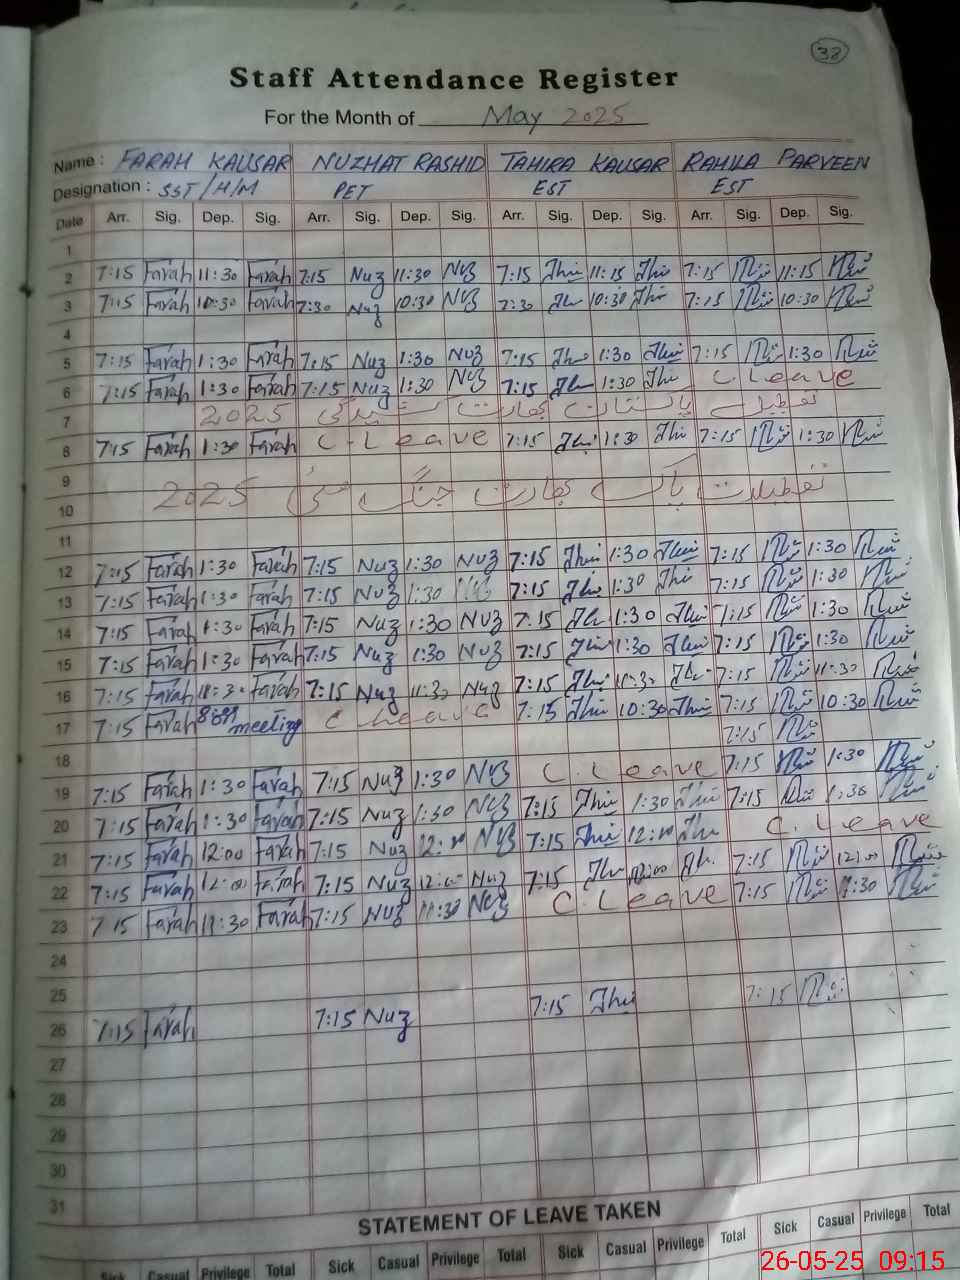 38
Staff Attendance Register
For the Month of May 2025
Name : FARAH KAUSAR NUZHAT RASHID TAHIRA KAUSAR RAHILA PARVEEN
Designation : SST/H/M PET EST EST
Date Arr. Sig. Dep. Sig. Arr. Sig. Dep. Sig. Arr. Sig. Dep. Sig. Arr. Sig. Dep. Sig.
1
2 7:15 Farah 11:30 Farah 7:15 Nuz 11:30 Nuz 7:15 11:15 7:15 11:15
3 7:15 Farah 10:30 Farah 7:30 Nuz 10:30 Nuz 7:30 10:30 7:15 10:30
4
5 7:15 Farah 1:30 Farah 7:15 Nuz 1:30 Nuz 7:15 1:30 7:15 1:30
6 7:15 Farah 1:30 Farah 7:15 Nuz 1:30 Nuz 7:15 1:30 C. Leave
7 تعطیل پاکستان بھارت کشیدگی 2025
8 7:15 Farah 1:30 Farah C. Leave 7:15 1:30 7:15 1:30
9
تعطیلات پاک بھارت جنگ مئی 2025
10
11
12 7:15 Farah 1:30 Farah 7:15 Nuz 1:30 Nuz 7:15 1:30 7:15 1:30
13 7:15 Farah 1:30 Farah 7:15 Nuz 1:30 Nuz 7:15 1:30 7:15 1:30
14 7:15 Farah 1:30 Farah 7:15 Nuz 1:30 Nuz 7:15 1:30 7:15 1:30
15 7:15 Farah 1:30 Farah 7:15 Nuz 1:30 Nuz 7:15 1:30 7:15 1:30
16 7:15 Farah 11:30 Farah 7:15 Nuz 11:30 Nuz 7:15 11:30 7:15 11:30
17 7:15 Farah meeting C. Leave 7:15 10:30 7:15 10:30
7:15
18
19 7:15 Farah 1:30 Farah 7:15 Nuz 1:30 Nuz C. Leave 7:15 1:30
20 7:15 Farah 1:30 Farah 7:15 Nuz 1:30 Nuz 7:15 1:30 7:15 1:30
21 7:15 Farah 12:00 Farah 7:15 Nuz 12:00 Nuz 7:15 12:00 C. Leave
22 7:15 Farah 12:00 Farah 7:15 Nuz 12:00 Nuz 7:15 12:00 7:15 12:00
23 7:15 Farah 11:30 Farah 7:15 Nuz 11:30 Nuz C. Leave 7:15 11:30
24
25
26 7:15 Farah 7:15 Nuz 7:15 7:15
27
28
29
30
31
STATEMENT OF LEAVE TAKEN
Sick Casual Privilege Total Sick Casual Privilege Total Sick Casual Privilege Total Sick Casual Privilege Total
26-05-25 09:15